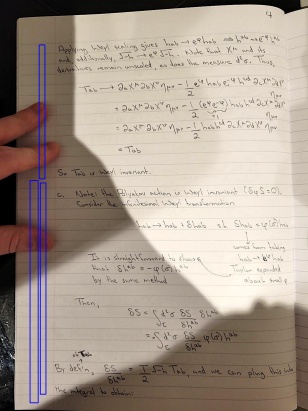 4
Applying Weyl scaling gives hab → e^φ hab ⇔ h^ab → e^-φ h^ab
and, additionally, √-h → e^φ √-h. Note that X^μ and its
derivatives remain unscaled, as does the measure d²σ. Thus,
Tab → ∂aX^μ ∂bX^ν ημν - 1/2 e^φ hab e^-φ h^cd ∂cX^μ ∂dX^ν ημν
= ∂aX^μ ∂bX^ν ημν - 1/2 (e^φ e^-φ) hab h^cd ∂cX^μ ∂dX^ν ημν
= ∂aX^μ ∂bX^ν ημν - 1/2 hab h^cd ∂cX^μ ∂dX^ν ημν
= Tab
So Tab is Weyl invariant.
c. Note: the Polyakov action is Weyl invariant (δφS = 0).
Consider the infinitesimal Weyl transformation
hab → hab + δhab s.t. δhab = φ(σ) hab
comes from taking
hab → e^φ hab
Taylor expanded
about small φ
It is straightforward to show
that δh^ab = -φ(σ) h^ab
by the same method
Then,
δS = ∫Σ d²σ δS/δh^ab δh^ab
= ∫Σ d²σ δS/δh^ab φ(σ) h^ab
By defn, δS/δh^ab = T/2 √-h Tab, and we can plug this into
the integral to obtain: